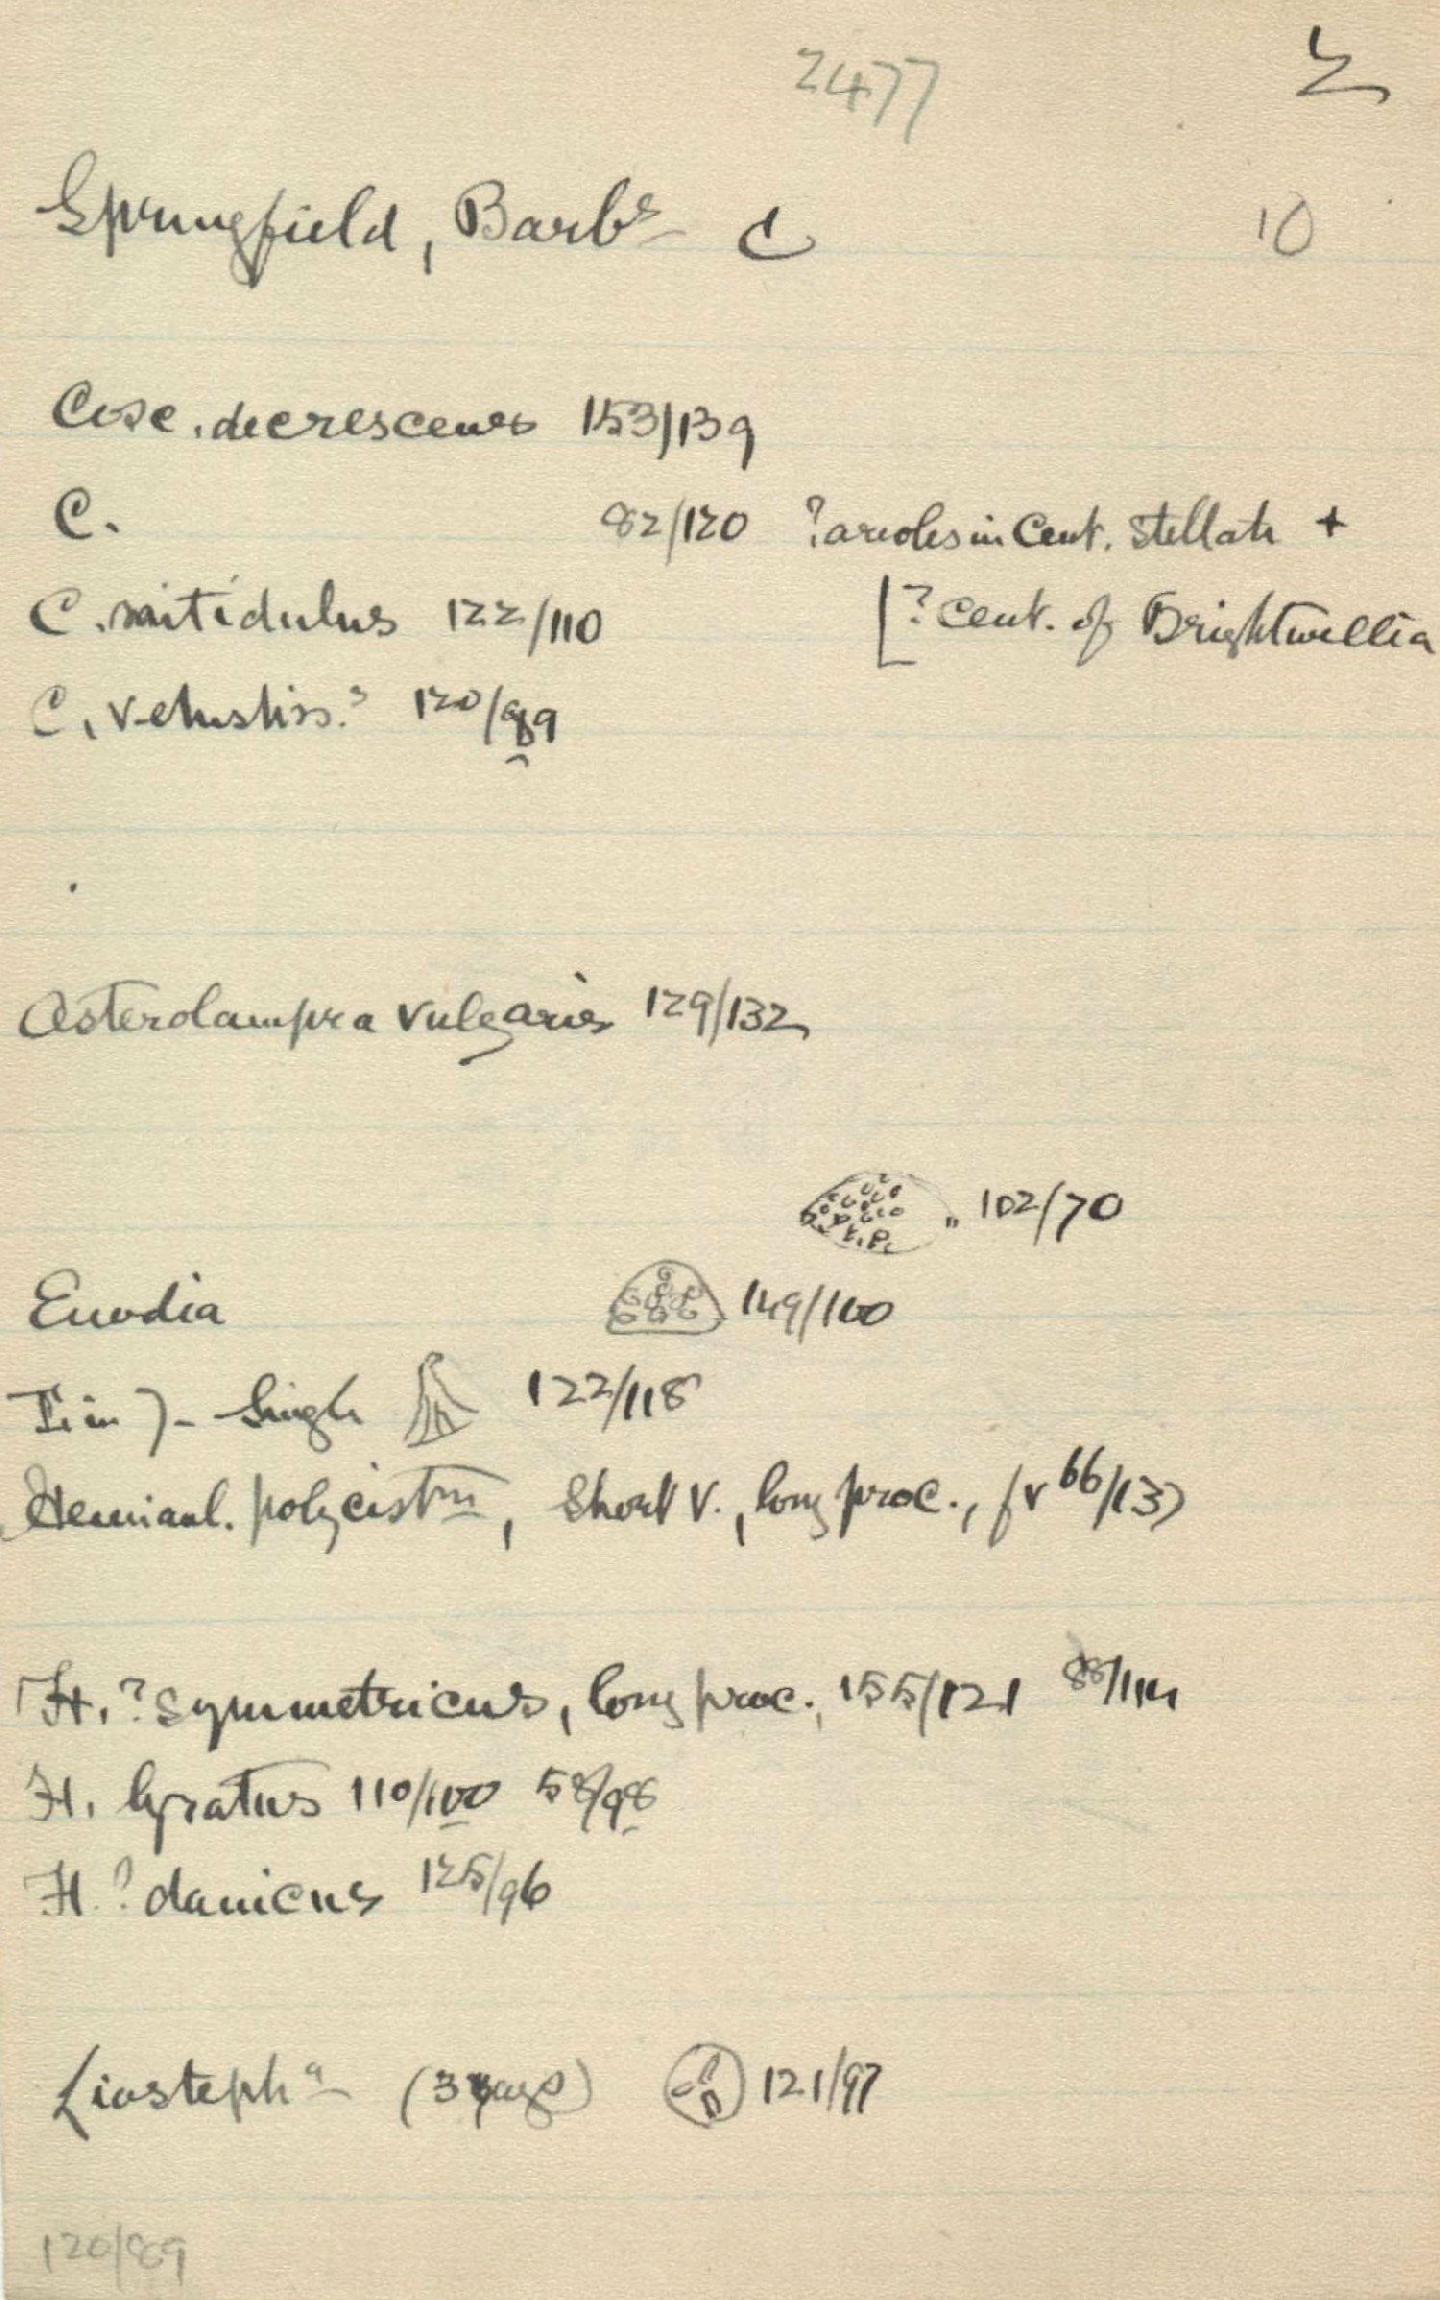 2477
Springfield, Barbs C 10
Cosc. decrescens 153/139
C. 82/120 ? areoles in Cent. stellate +
C. nitidulus 122/110 [? cent. of Brightwellia
C. vetustiss.? 120/89
Asterolampra vulgaris 129/132
" 102/70
Euodia 149/100
122/118
Hemiaul. polycistm, short v., long proc., fv 66/137
H. ? symmetricus, long proc., 155/121 88/114
H. lyratus 110/100 58/98
H. ? danicus 125/96
Liosteph a (3 rays) 121/97
120/89